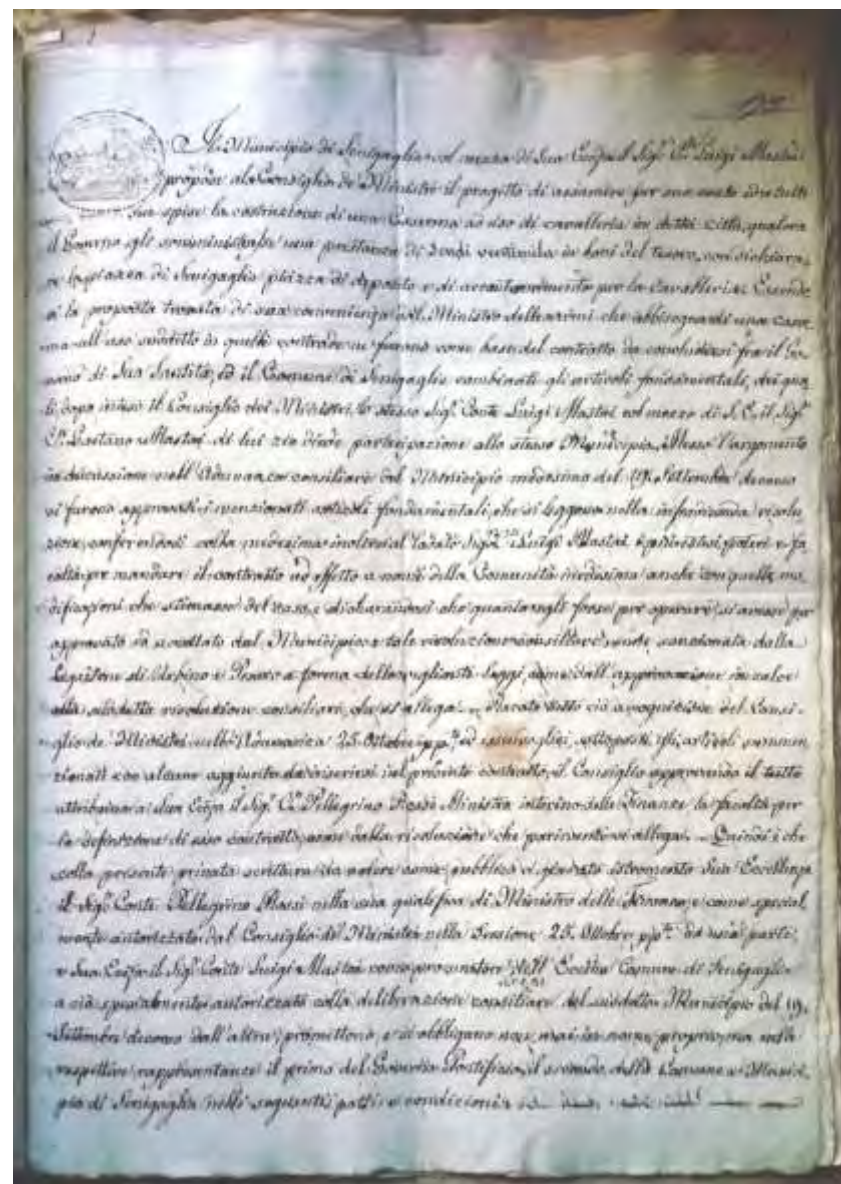 Il Municipio di Senigaglia col mezzo di Sua Ecc̃za il Sigr. Cte. Luigi Mastai
propose al Consiglio de' Ministri il progetto di assumere per suo conto e
sue spese la costruzione di una Caserma ad uso di cavalleria in detta città, qualora
il Governo gli somministrasse una prestanza di Scudi ventimila in boni del tesoro, con dichiara-
re la piazza di Senigaglia piazza di deposito e di accantonamento per la Cavalleria. Essendo-
si la proposta trovata di sua convenienza dal Ministro delle armi che abbisogna di una caser-
ma all'uso suddetto in quelle contrade ne furono come base del contratto da concludersi fra il Go-
verno di Sua Santità, ed il Comune di Senigaglia combinati gli articoli fondamentali, dei qua-
li dopo inteso il Consiglio dei Ministri, lo stesso Sigr. Conte Luigi Mastai col mezzo di S. E. il Sigr.
Cte. Gaetano Mastai di lui zio diede partecipazione allo stesso Municipio. Messo l'argomento
in discussione nell'Adunanza consiliare del Municipio medesimo del 19. Settembre decorso
vi furono approvati i menzionati articoli fondamentali, che si leggono nella infrascritta risolu-
zione, conferendosi colla medesima inoltre al lodato Sigr. Cte. Luigi Mastai i poteri e fa-
coltà per mandare il contratto ad effetto a nome della Comunità medesima anche con quelle mo-
dificazioni che stimasse del caso, e dichiarandosi che quanto egli fosse per operare si avesse per
approvato ed accettato dal Municipio e tale risoluzione consiliare venne sanzionata dalla
Legazione di Urbino e Pesaro a forma delle veglianti Leggi, come dall'approvazione in calce
alla suddetta risoluzione consiliare, che si allega. Recato tutto ciò a cognizione del Consi-
glio de' Ministri nell'Adunanza 25. Ottobre pp.to ed sottoposti gli articoli summen-
zionati con alcune aggiunte da inserirsi nel presente contratto, il Consiglio approvando il tutto
attribuiva a Sua Ecc̃za il Sigr. Cte. Pellegrino Rossi Ministro interino delle Finanze la facoltà per
la definizione di esso contratto, come dalla risoluzione che parimenti si allega. Quindi è che
colla presente privata scrittura da valere come pubblico e giurato istromento Sua Eccellenza
il Sigr. Conte Pellegrino Rossi nella sua qualifica di Ministro delle Finanze, e come special-
mente autorizzato dal Consiglio de' Ministri nella Sessione 25. Ottobre pp.to da una parte,
e Sua Ecc̃za il Sigr. Conte Luigi Mastai come procuratore dell' Comune di Senigaglia
a ciò specialmente autorizzato colla deliberazione consiliare del suddetto Municipio del 19.
Settembre decorso dall'altra, promettono, e si obbligano non mai in nome proprio, ma nelle
respettive rappresentanze il primo del Governo Pontificio, il secondo della Comune e Munici-
pio di Senigaglia nelli seguenti patti e condizioni